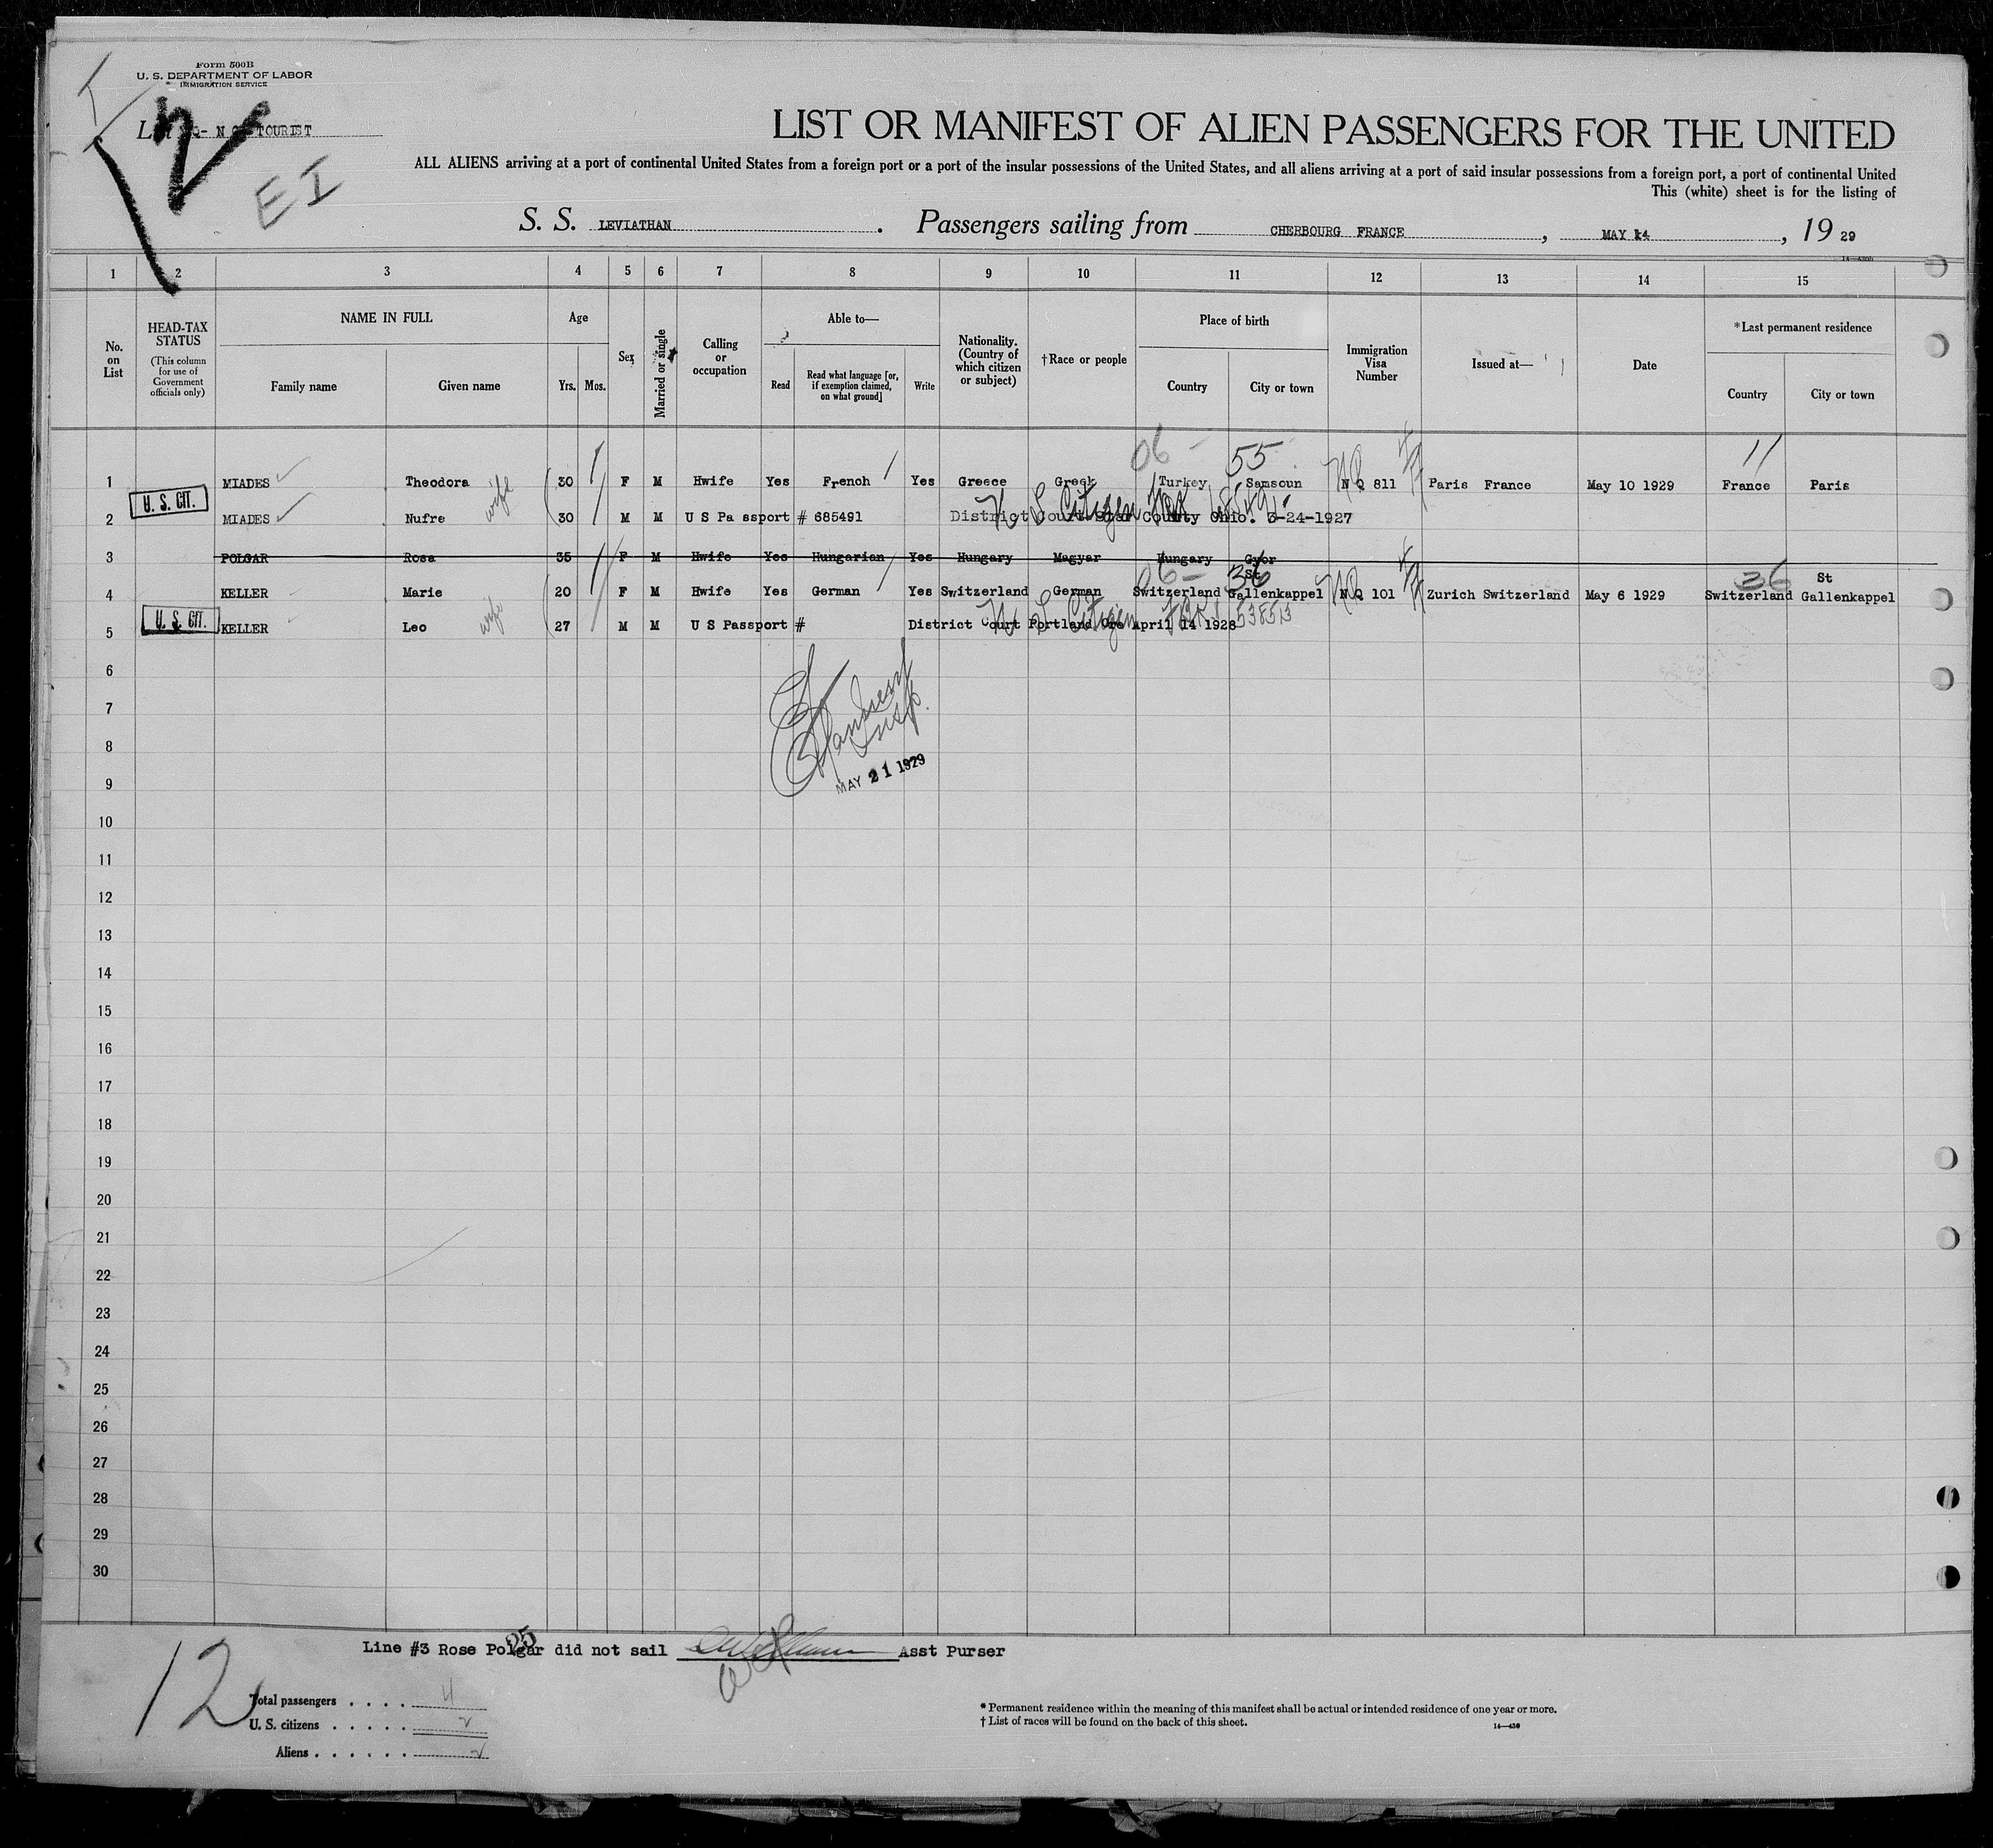 Form 500B
U. S. DEPARTMENT OF LABOR
IMMIGRATION SERVICE
TOURIST
2
EI
LIST OR MANIFEST OF ALIEN PASSENGERS FOR THE UNITED
ALL ALIENS arriving at a port of continental United States from a foreign port or a port of the insular possessions of the United States, and all aliens arriving at a port of said insular possessions from a foreign port, a port of continental United
This (white) sheet is for the listing of
S. S. LEVIATHAN . Passengers sailing from CHERBOURG FRANCE , MAY 14 , 19 29
1 2 3 4 5 6 7 8 9 10 11 12 13 14 15
No. on List
HEAD-TAX STATUS
(This column for use of Government officials only)
NAME IN FULL
Family name Given name
Age
Yrs. Mos.
Sex
Married or single
Calling or occupation
Able to—
Read Read what language [or, if exemption claimed, on what ground] Write
Nationality. (Country of which citizen or subject)
†Race or people
Place of birth
Country City or town
Immigration Visa Number
Issued at—
Date
*Last permanent residence
Country City or town
06 - 55 11
1 MIADES Theodora 30 F M Hwife Yes French Yes Greece Greek Turkey Samsoun N Q 811 Paris France May 10 1929 France Paris
U. S. CIT.
wife
2 MIADES Nufre 30 M M U S Pa ssport # 685491 District Court County Ohio. 3-24-1927
3 POLGAR Rosa 35 F M Hwife Yes Hungarian Yes Hungary Magyar Hungary Gyor
06- 36 St 36 St
4 KELLER Marie 20 F M Hwife Yes German Yes Switzerland German Switzerland Gallenkappel N Q 101 Zurich Switzerland May 6 1929 Switzerland Gallenkappel
U. S. CIT.
wife
5 KELLER Leo 27 M M U S Passport # District Court Portland Ore April 14 1928
6
7
8
MAY 21 1929
9
10
11
12
13
14
15
16
17
18
19
20
21
22
23
24
25
26
27
28
29
30
25
Line #3 Rose Polgar did not sail Asst Purser
12
Total passengers . . . . 4
U. S. citizens . . . . . 2
Aliens . . . . . . 2
* Permanent residence within the meaning of this manifest shall be actual or intended residence of one year or more.
† List of races will be found on the back of this sheet.
14—430